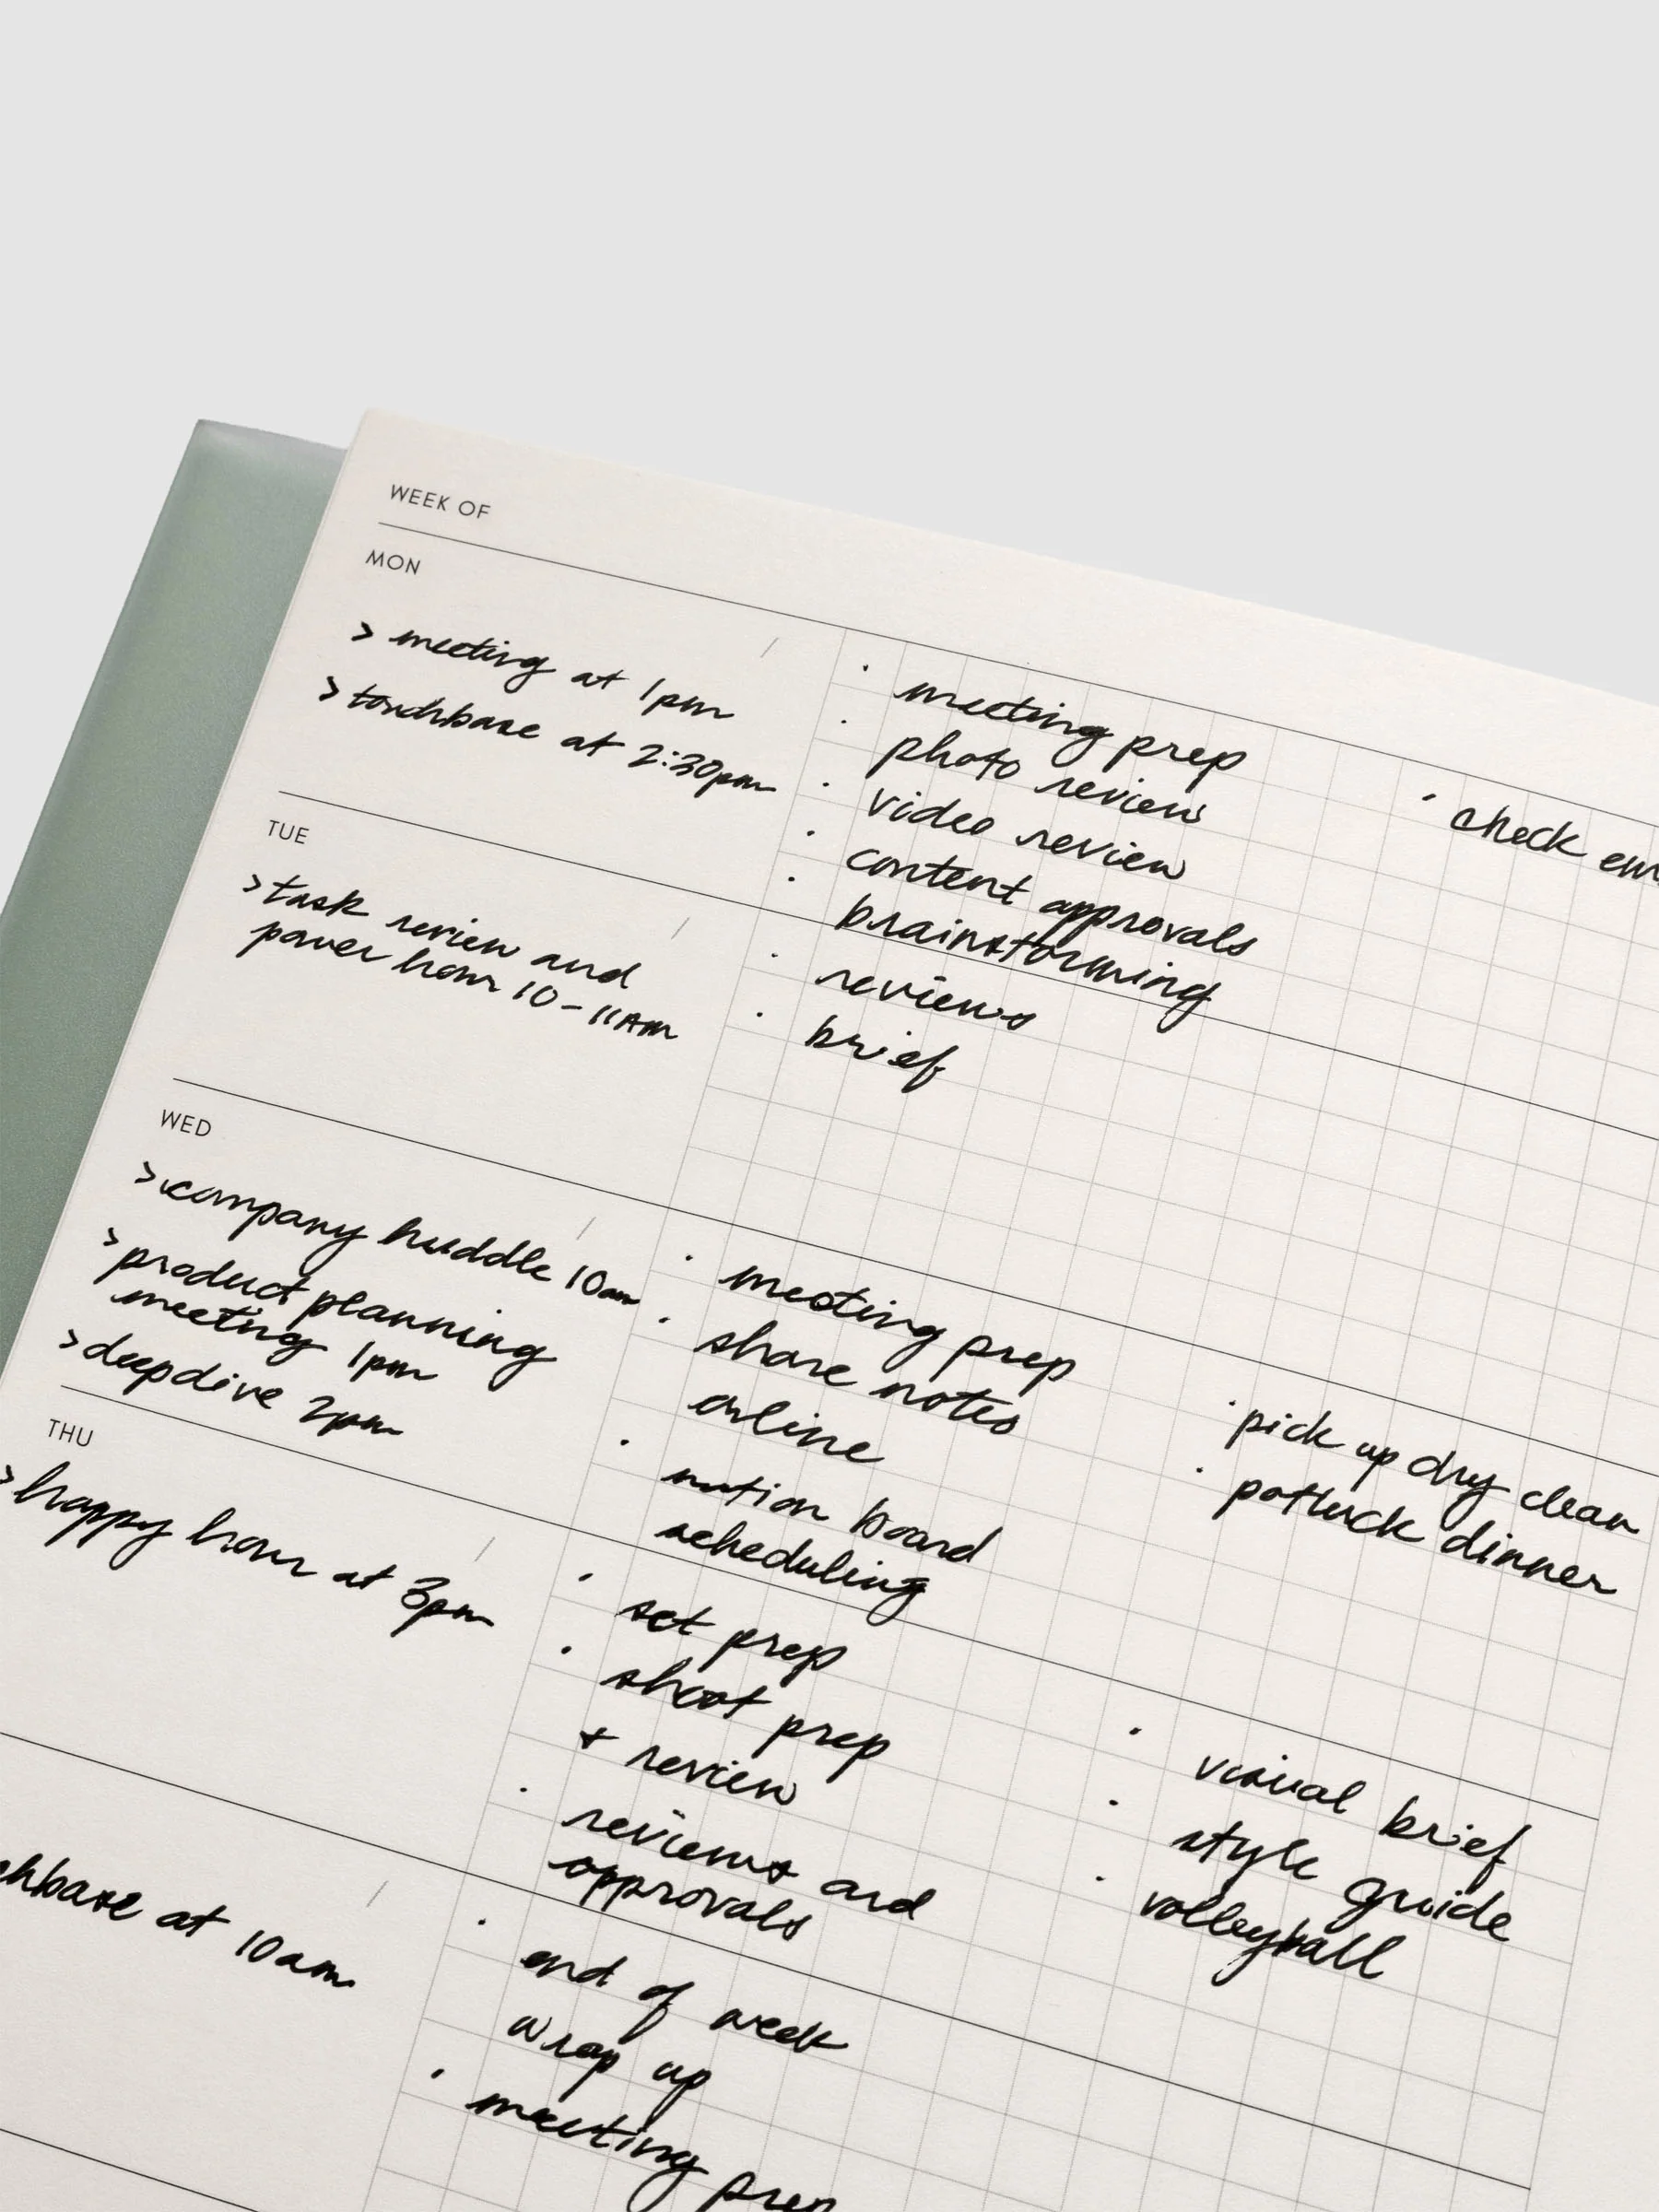 WEEK OF
MON
> meeting at 1pm
> touchbase at 2:30pm
· meeting prep
· photo review
· video review
· content approvals
· brainstorming
· check
TUE
> task review and
power hour 10-11AM
· reviews
· brief
WED
> company huddle 10am
> product planning
meeting 1pm
> deepdive 2pm
· meeting prep
· share notes
online
· notion board
scheduling
· pick up dry clean
· potluck dinner
THU
> happy hour at 3pm
· set prep
· shoot prep
+ review
· reviews and
approvals
· visual brief
· style guide
· volleyball
chbase at 10am
· end of week
wrap up
· meeting prep